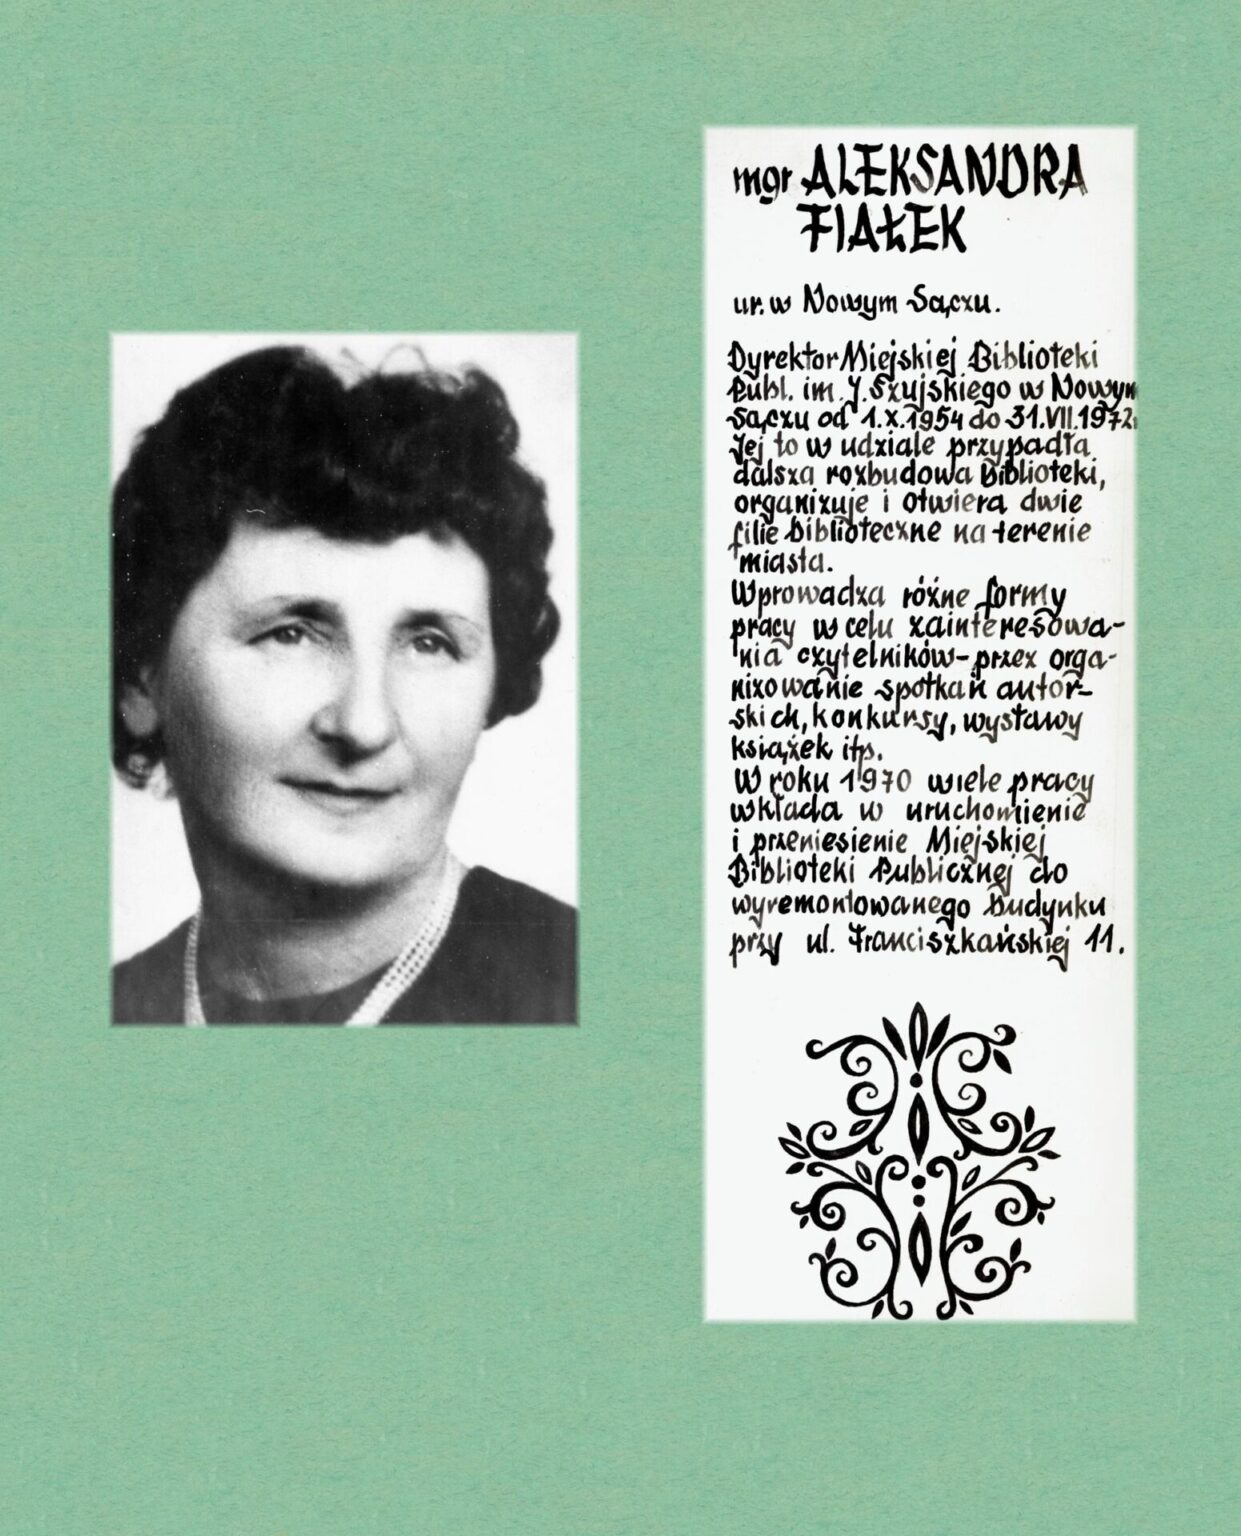 mgr ALEKSANDRA
FIAŁEK
ur. w Nowym Sączu.
Dyrektor Miejskiej Biblioteki
Publ. im. J. Szujskiego w Nowym
Sączu od 1.X.1954 do 31.VII.1972r
Jej to w udziale przypadła
dalsza rozbudowa Biblioteki,
organizuje i otwiera dwie
filie biblioteczne na terenie
miasta.
Wprowadza różne formy
pracy w celu zainteresowa-
nia czytelników - przez orga-
nizowanie spotkań autor-
skich, konkursy, wystawy
książek itp.
W roku 1970 wiele pracy
wkłada w uruchomienie
i przeniesienie Miejskiej
Biblioteki Publicznej do
wyremontowanego budynku
przy ul. Franciszkańskiej 11.